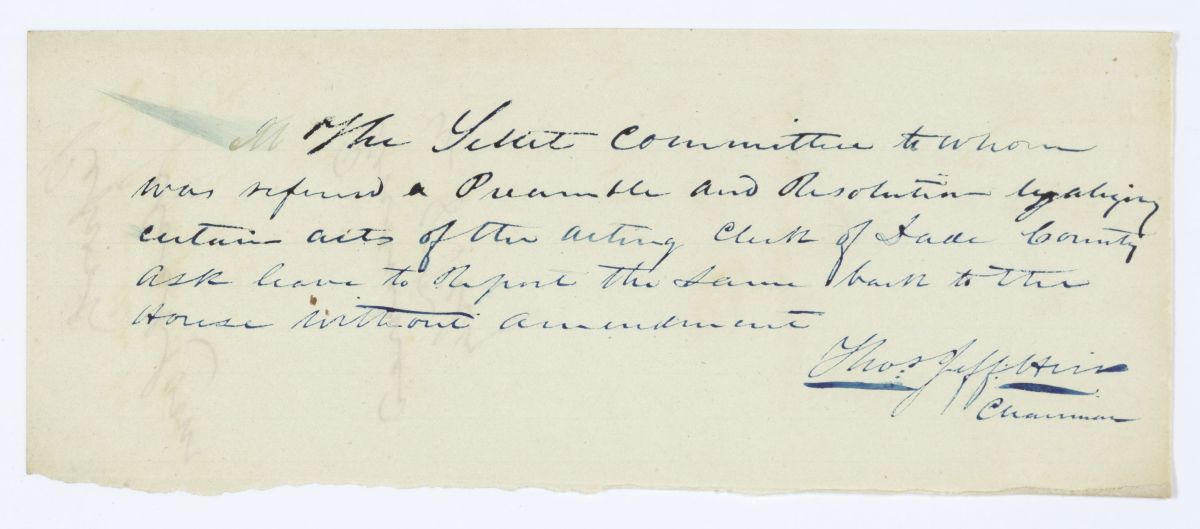 The Select Committee to whom
was refered a Preamble and Resolution legalizing
certain acts of the acting Clerk of Dade County
ask leave to Report the same back to the
House without amendment
Thos. Jeff.
Chairman